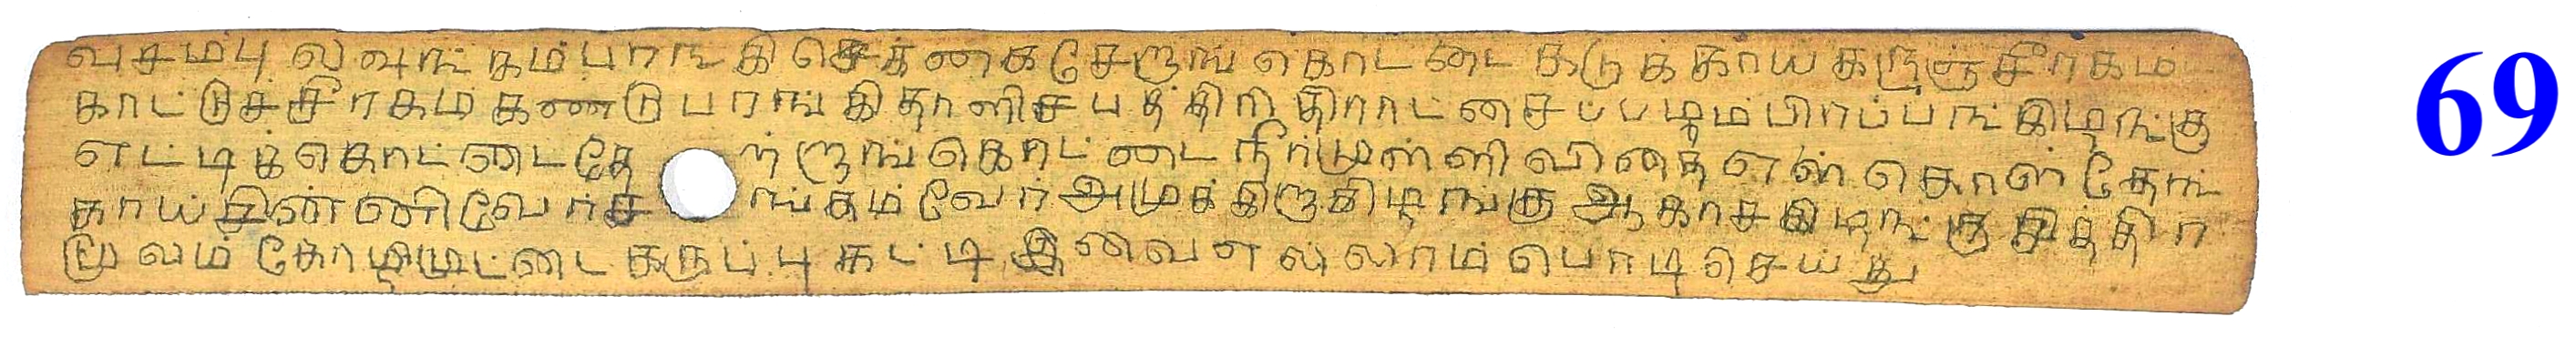 வசம்பு லவுங்கம் பரங்கி செக்கணக சேறாங் கொட்டை கடுக்காய் கருஞ்சீரகம்
காட்டுச்சீரகம் கண்டு பரங்கி தாளிசபத்திரி திராட்சைப்பழம் பிரப்பங்கிழங்கு
எட்டிக்கொட்டை தேற்றாங்கொட்டை நீர்முள்ளி விதை எள் கொள் தேங்
காய் திண்ணிவேர் ச ங்கம் வேர் அமுக்கிறுகிழங்கு ஆகாசகிழங்கு சித்திர
மூலம் கோழிமுட்டை கருப்புகட்டி இவை எல்லாம் பொடி செய்து
69